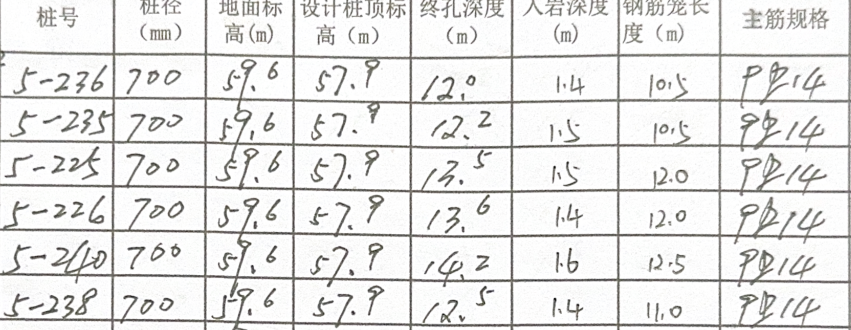 桩号 桩径（mm） 地面标高(m) 设计桩顶标高（m） 终孔深度（m） 入岩深度(m) 钢筋笼长度（m） 主筋规格
5-236 700 59.6 57.9 12.0 1.4 10.5 9⏀14
5-235 700 59.6 57.9 12.2 1.5 10.5 9⏀14
5-225 700 59.6 57.9 13.5 1.5 12.0 9⏀14
5-226 700 59.6 57.9 13.6 1.4 12.0 9⏀14
5-240 700 59.6 57.9 14.2 1.6 12.5 9⏀14
5-238 700 59.6 57.9 12.5 1.4 11.0 9⏀14